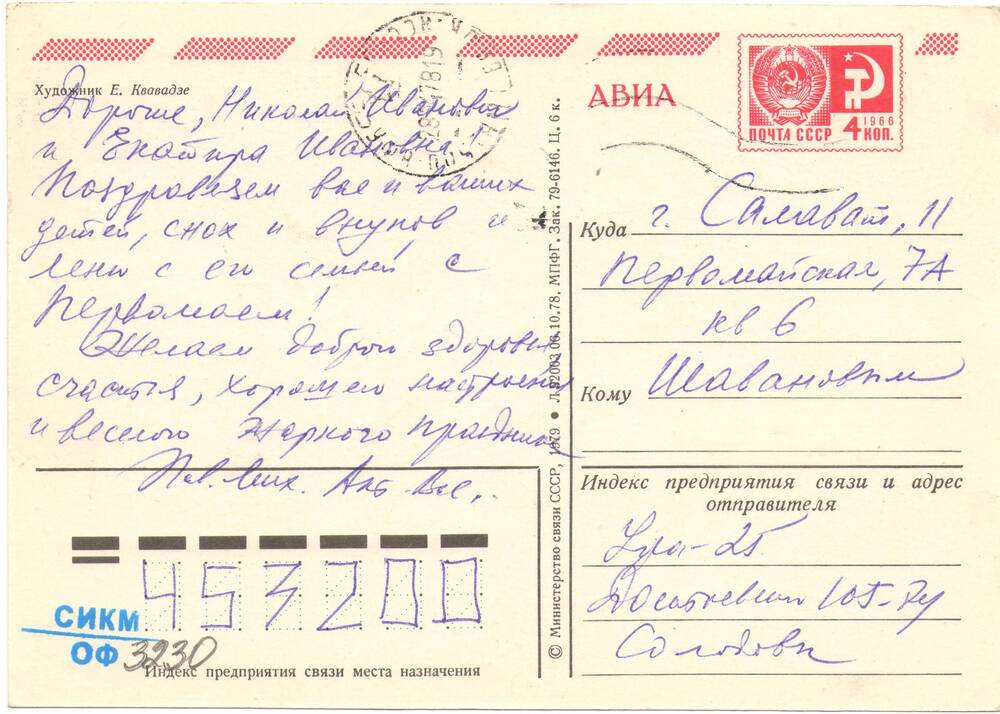 Художник Е. Квавадзе
Дорогие, Николай Иванович
и Екатира Ивановна!
Поздравляем вас и ваших
детей, снох и внуков и
Лену с его семьей с
Первомаем!
Желаем доброго здоровья
счастья, хорошего настроения
и веселого жаркого праздника
АВИА
1966
ПОЧТА СССР 4 КОП.
Куда г. Салават, 11
Первомайская, 7А
кв 6
Кому Шавановым
Индекс предприятия связи и адрес
отправителя
Уфа-25
105-74
© Министерство связи СССР, 1979 ● 06.10.78. МПФГ. Зак. 79-6146. Ц. 6 к.
453200
СИКМ
ОФ 3230
Индекс предприятия связи места назначения